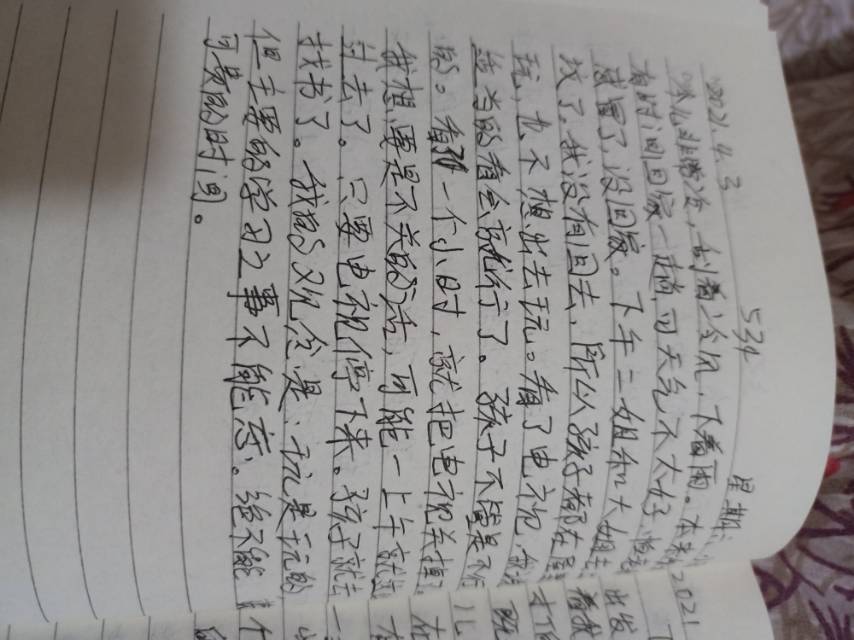 2021.4.3 534 星期
今儿非常冷,刮着冷风,下着雨。本来
有时间回家一趟,可天气不大好,
感冒了,没回家。下午二姐和大姐去
坟了。我没有回去,所以孩子都在屋里
玩,也不想出去玩。看了电视,就
适当的看会就行了。孩子不管是不
够。看到一个小时,就把电视关掉了
我想要是不关的话,可能一上午就这
过去了。只要电视停下来。孩子就去
找书了。我的观念是:玩是玩的
但主要的学习之事不能忘。绝不能
可贵的时间。
2021
出发
着我